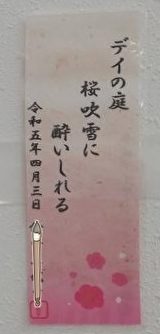 デイの庭
桜吹雪に
酔いしれる
令和五年四月三日